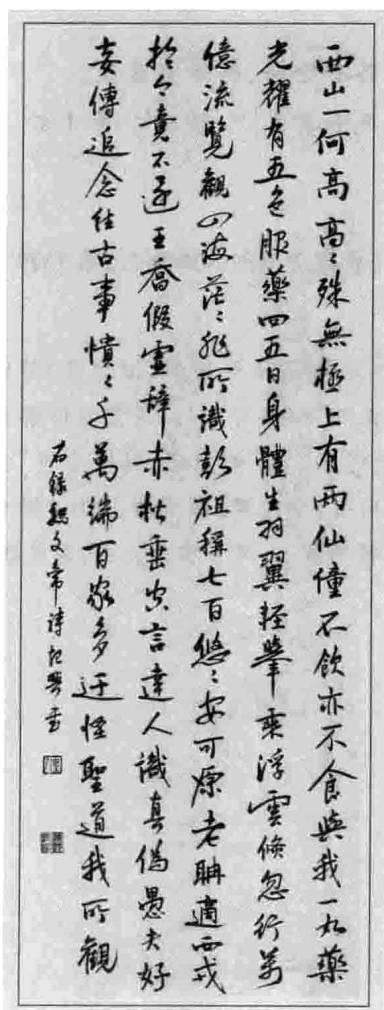 西山一何高高〻殊無極上有兩仙僮不飲亦不食與我一丸藥
光耀有五色服藥四五日身體生羽翼輕舉乘浮雲倏忽行萬
億流覽觀四海茫〻非所識彭祖稱七百悠〻安可原老聃適西戎
於今竟不還王喬假虛辭赤松垂空言達人識真偽愚夫好
妄傳追念往古事憒〻千萬端百家多迂怪聖道我所觀
右錄魏文帝詩